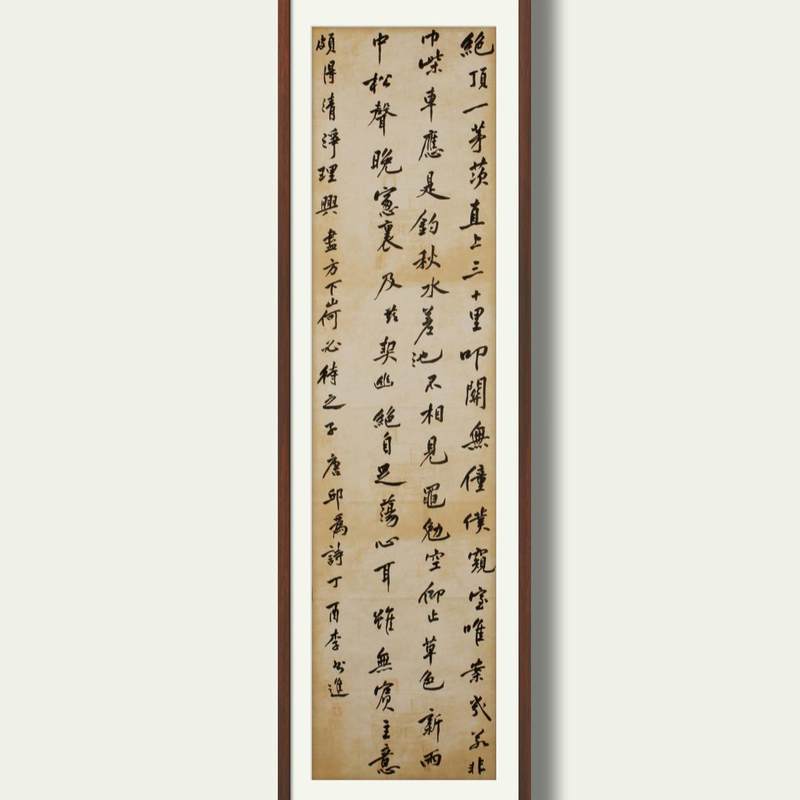 絶頂一茅茨直上三十里叩關無僮僕窺室唯案几若非
巾柴車應是釣秋水差池不相見黽勉空仰止草色新雨
中松聲晚窻裏及茲契幽絶自足蕩心耳雖無賓主意
頗得清淨理興盡方下山何必待之子 唐邱為詩丁酉李進